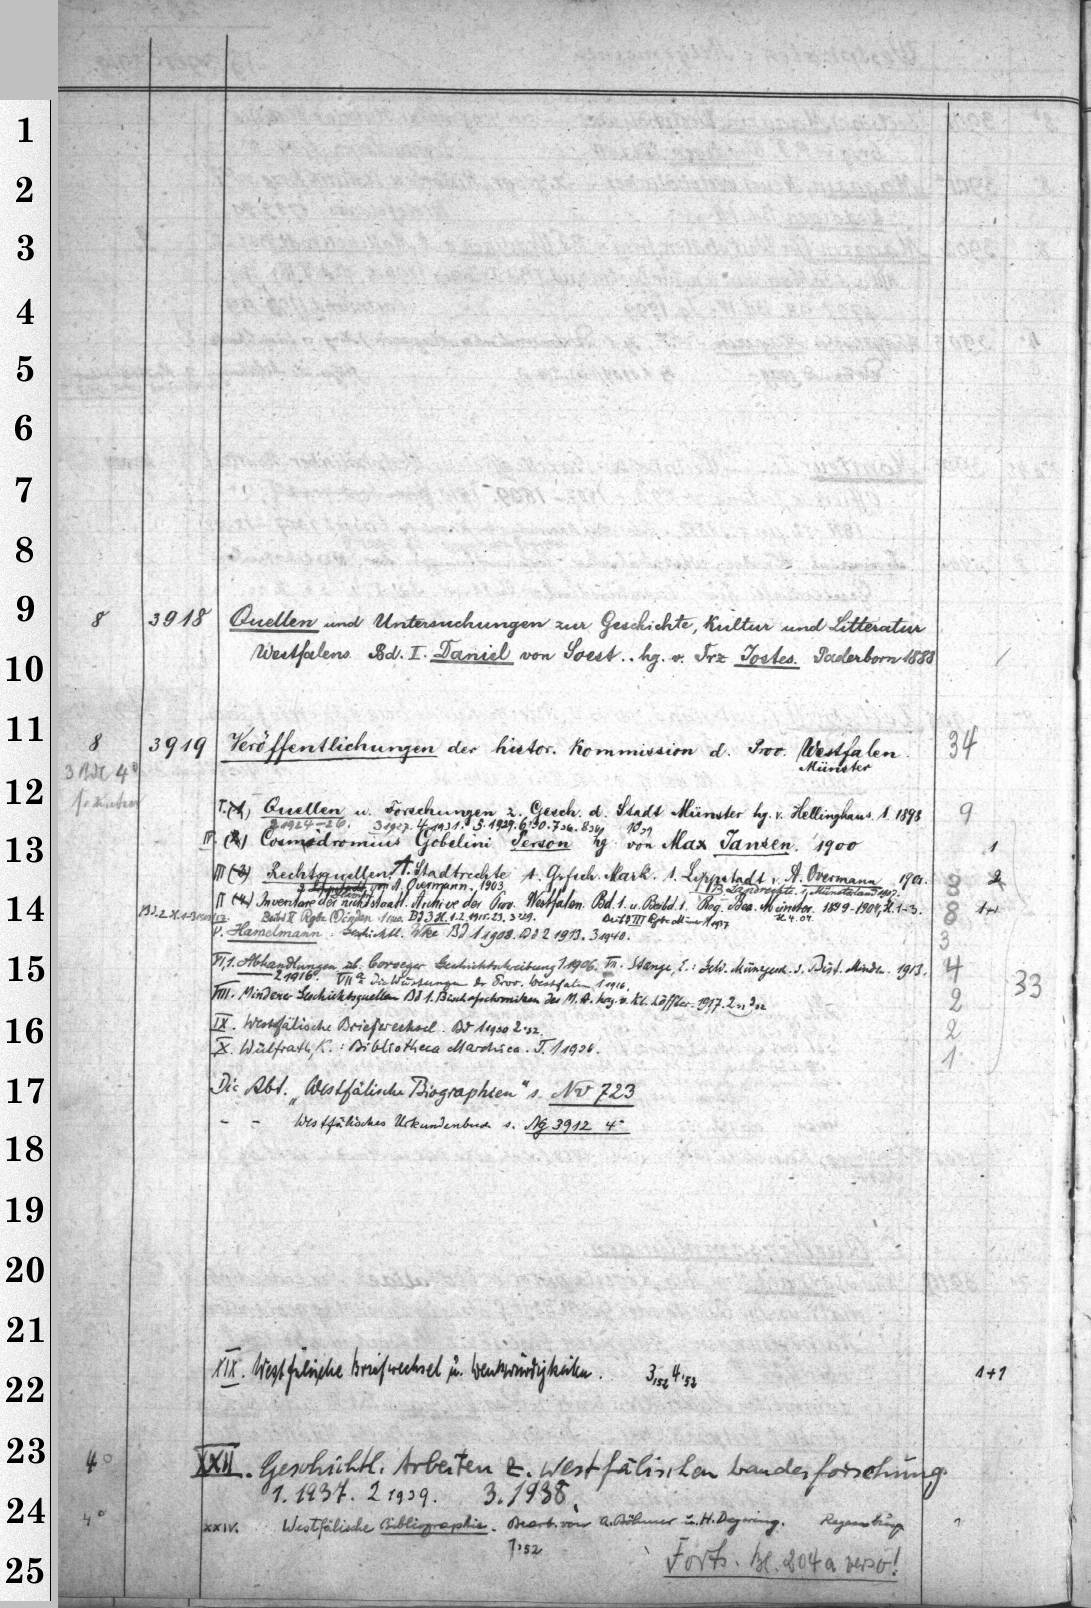 1
2
3
4
5
6
7
8
9
8 3918 Quellen und Untersuchungen zur Geschichte, Kultur und Litteratur
10
Westfalens. Bd. I. Daniel von Soest.. hg. v. Frz Jostes. Paderborn 1888
11
8 3919 Veröffentlichungen der histor. Kommission d. Prov. Westfalen. 34
Münster
3 Bde 4°
12
I. (1) Quellen u. Forschungen z. Gesch. d. Stadt Münster hg. v. Hellinghaus 1. 1898 9
2 1924-26. 3 1927. 4 1931. 5. 1929. 6 30. 7 36. 8 38 10 39
13
II. (2) Cosmodromius Gobelini Person hg von Max Jansen. 1900 1
III (3) Rechtsquellen. A. Stadtrechte 1. Grfsch. Mark. 1. Lippstadt v. A. Overmann 1901. 8 2
v. A. Overmann. 1903 B. Landrechte. 1, Münsterland 1907.
14
IV (4.) Inventare der nichtstaatl. Archive der Prov. Westfalen. Bd. 1. u. Beibd. 1. Reg. Bez. Münster. 1899-1904, H. 1-3. 8 1+
Bd. 3 H. 1.2, 1915. 23, 3 29.
V. Hamelmann. Geschichtl. Wke Bd 1 1908. Bd 2 1913. 3 1940. 3
15
VI, 1. Abhandlungen üb. Corveyer Geschichtschreibung 1. 1906. VII. Stange, E.: Geld- Münzgesch. d. Bist. Minden. 1913. 4
2 1916. VII a: Die Wüstungen der Prov. Westfalen 1 1916.
33
VIII. Mindener Geschichtsquellen Bd 1. Bischofschroniken des M. A. hrsg. v. Kl. Löffler. 1917. 2 32 2
16
IX. Westfälische Briefwechsel. Bd 1 1930 2 32. 2
X. Wülfrath, K.: Bibliotheca Marchica. T. 1 1936. 1
17
Die Abt. „Westfälische Biographien" s. Nv 723
– – Westfälisches Urkundenbuch s. Ng 3912 4°
18
19
20
21
22
XIX. Westfälische Briefwechsel u. Denkwürdigkeiten. 3,52 4,52 1+1
23
4° XXII. Geschichtl. Arbeiten z. westfälischen Landesforschung.
24
1. 1937. 2 1939. 3. 1938.
4° XXIV. Westfälische Bibliographie. Bearb. von A. Bömer u. H. Degering.
1,52
25
Forts. Bl. 204a verso!